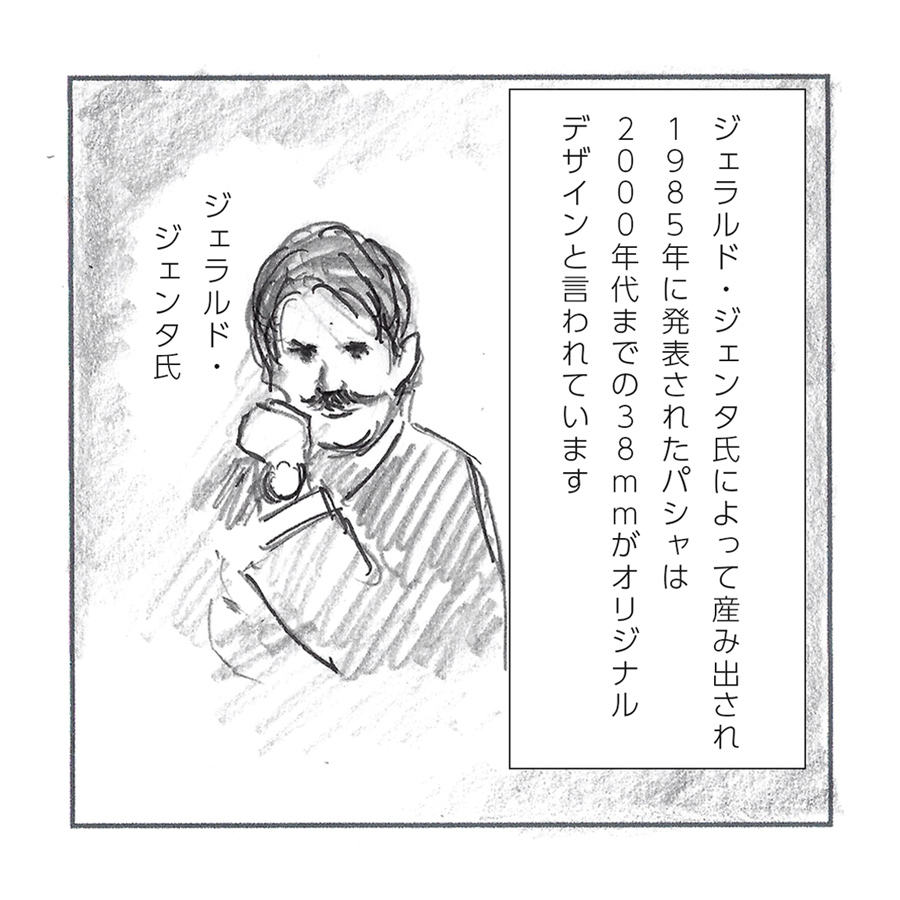 ジェラルド・ジェンタ氏によって産み出され
1985年に発表されたパシャは
2000年代までの38mmがオリジナル
デザインと言われています
ジェラルド・
ジェンタ氏